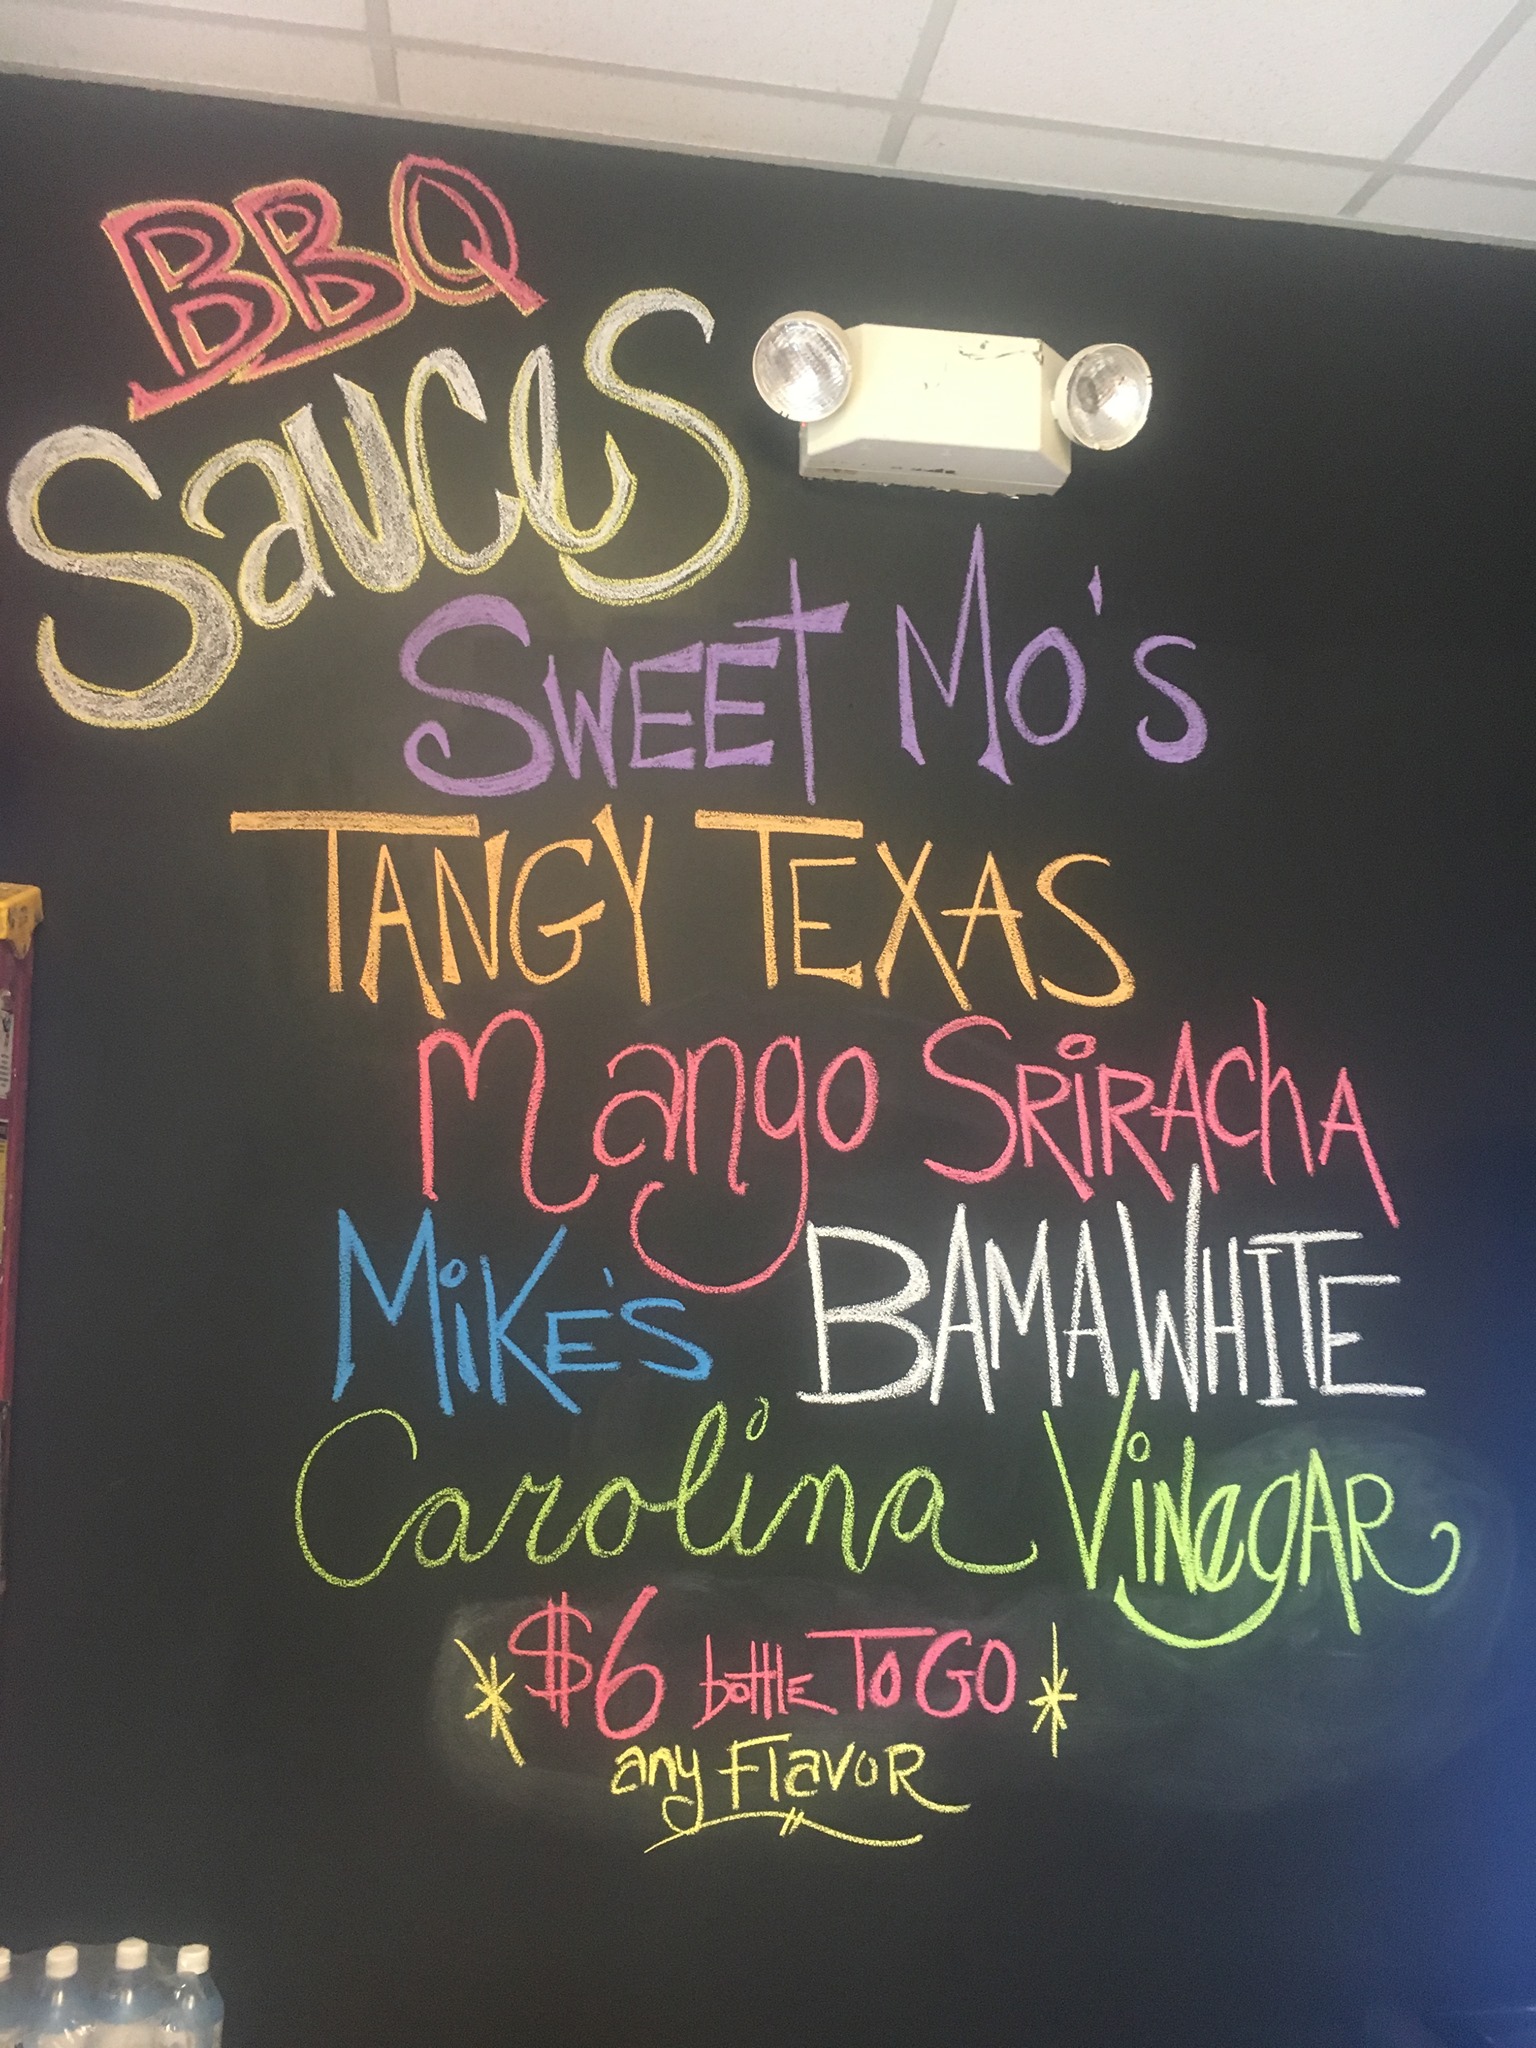 BBQ
Sauces
SWEET MO'S
TANGY TEXAS
Mango SRiRAchA
MiKE'S BAMA WHITE
Carolina VINegAR
$6 bottlE TO GO
any FlavoR